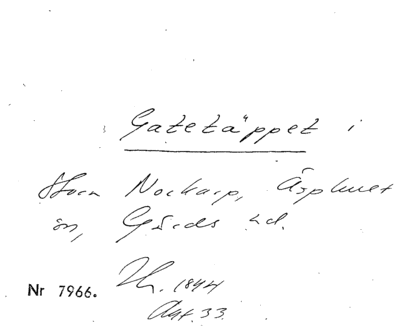 Gatetäppet i
Stora Nockarp, Äsphult
sn, Gärds hd.
Nr 7966. Th. 1844
Akt. 33.